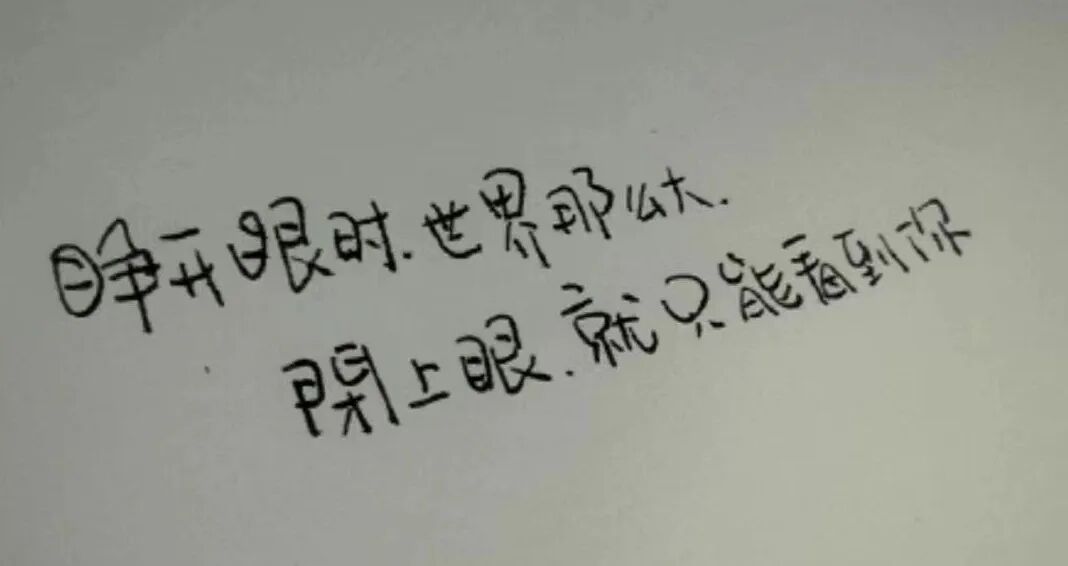 睁开眼时.世界那么大.
閉上眼.就只能看到你